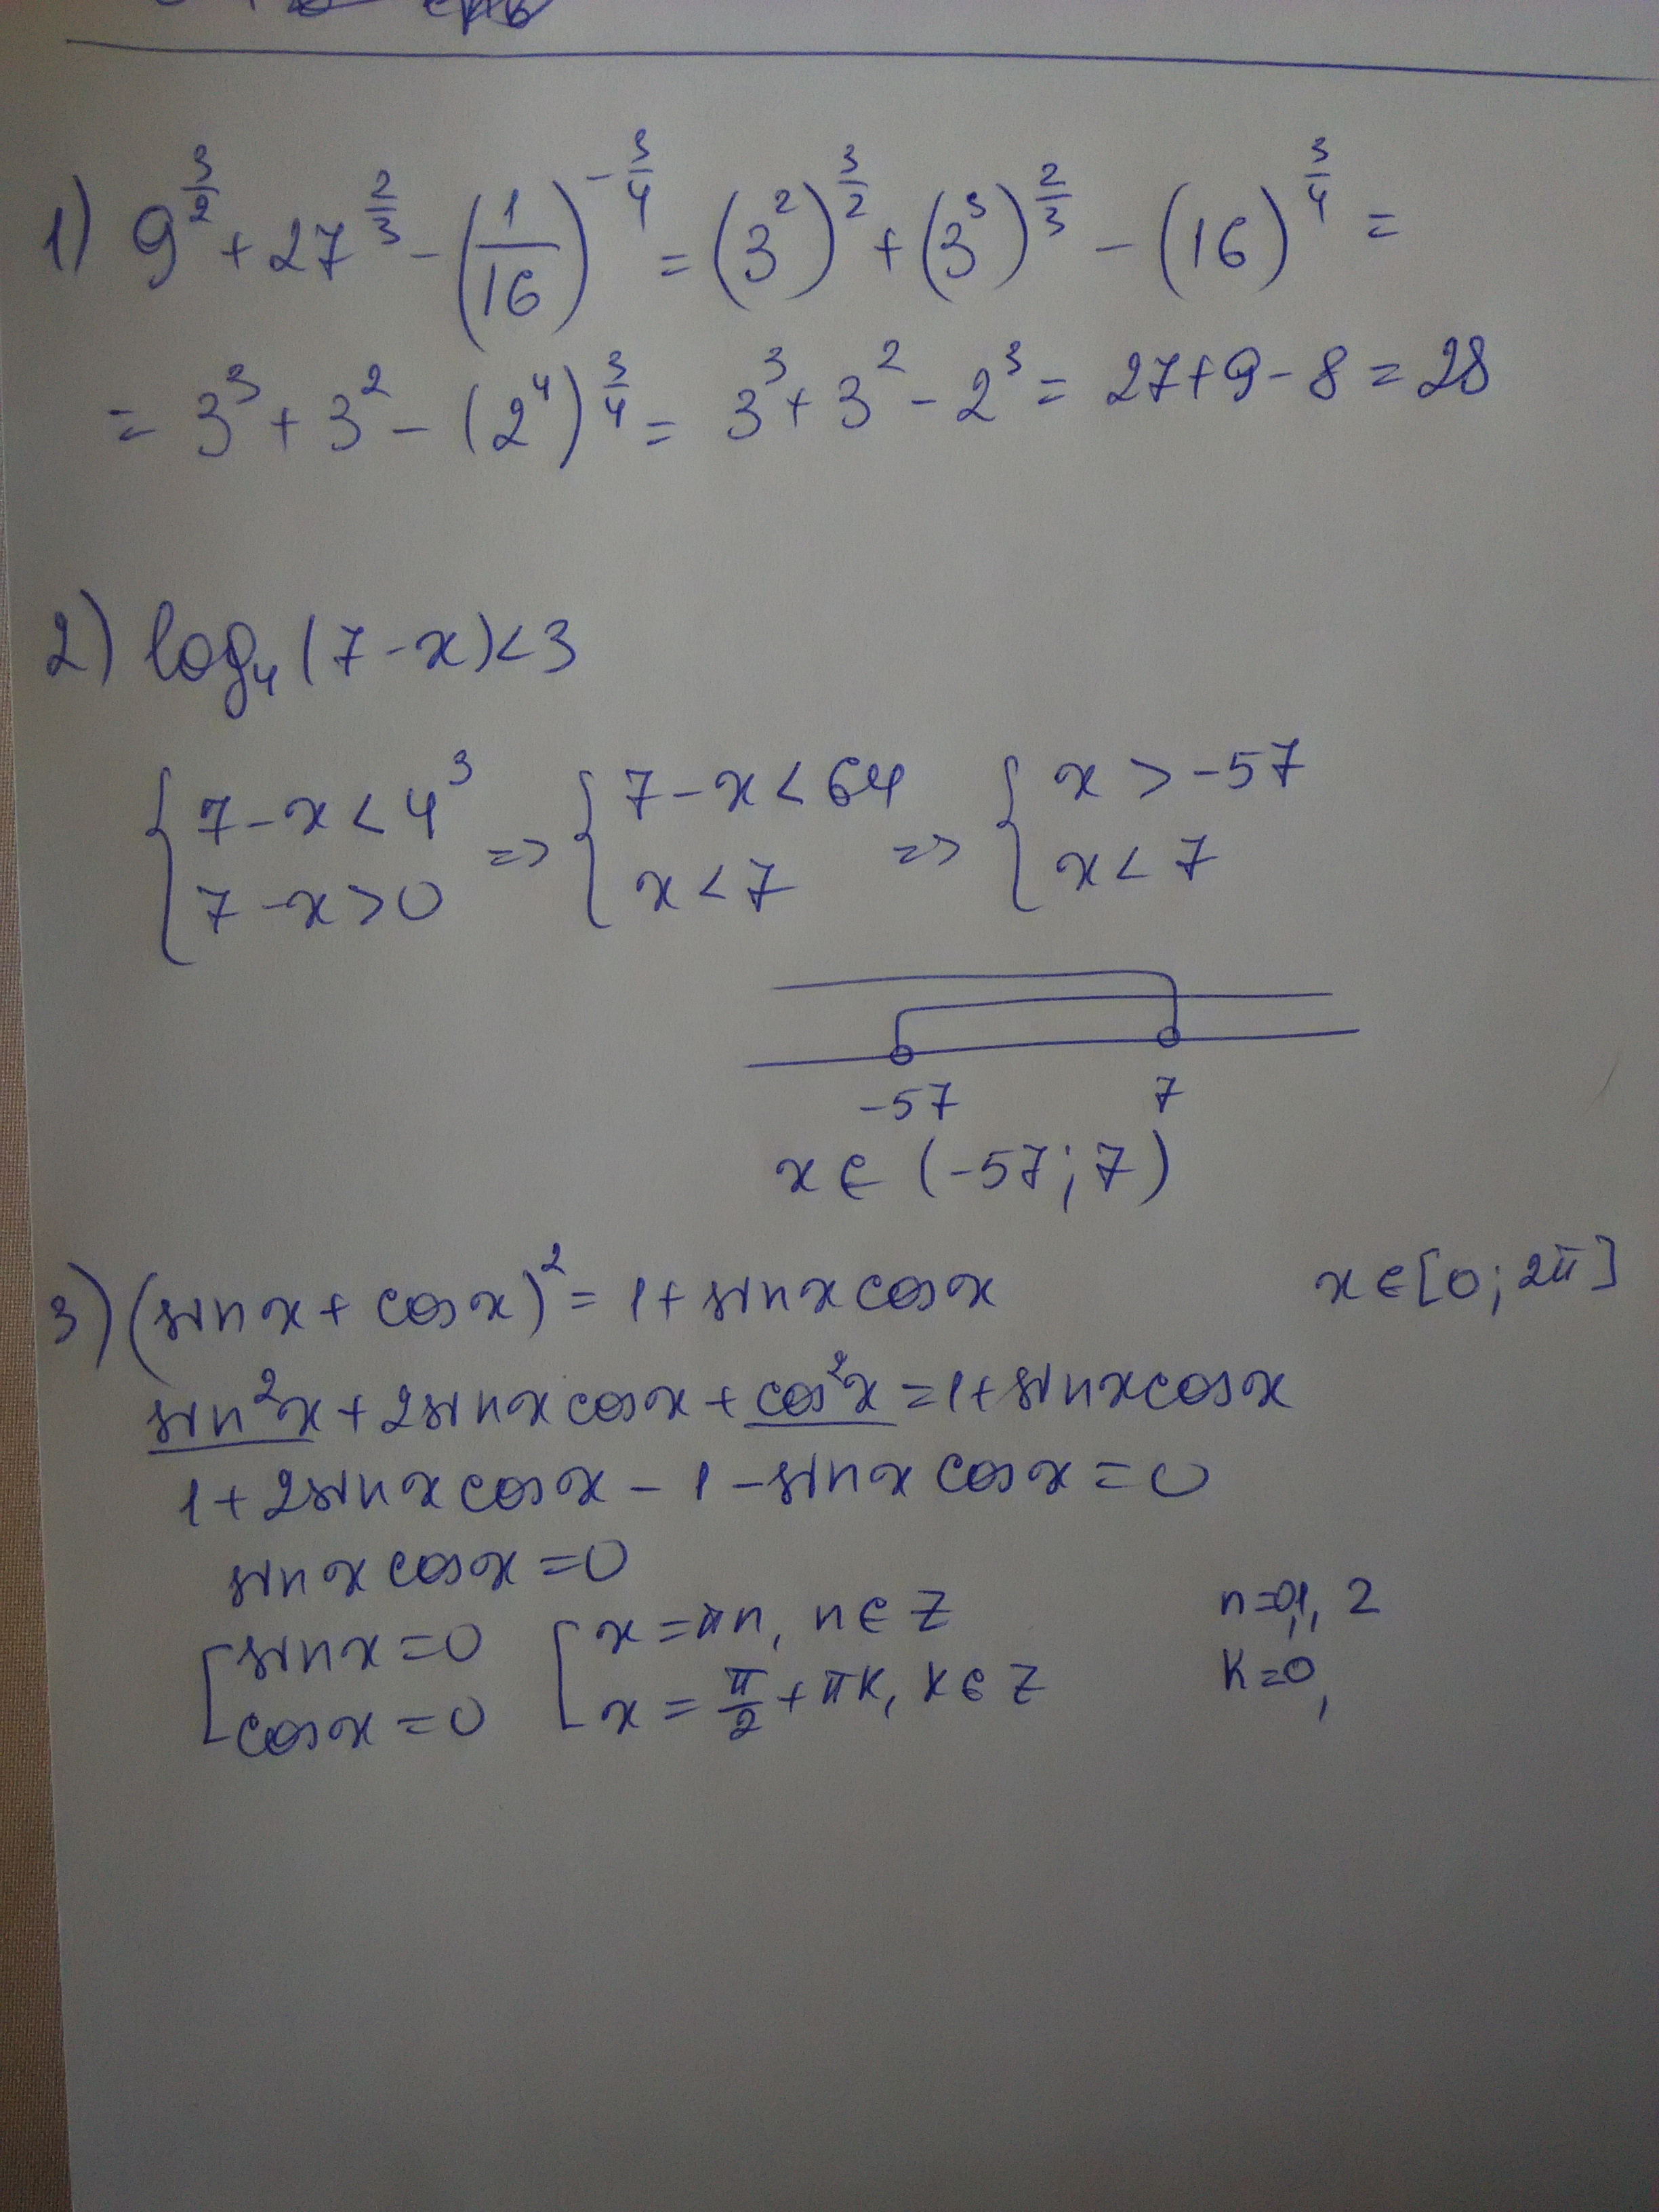 1) 9^{3/2} + 27^{2/3} - (1/16)^{-3/4} = (3^2)^{3/2} + (3^3)^{2/3} - (16)^{3/4} =
= 3^3 + 3^2 - (2^4)^{3/4} = 3^3 + 3^2 - 2^3 = 27+9-8=28
2) log_4 (7-x)<3
{ 7-x<4^3 => { 7-x<64 => { x>-57
7-x>0 x<7 x<7
-57 7
x∈(-57;7)
3) (sin x + cos x)^2 = 1+ sin x cos x x∈[0; 2π]
sin^2 x + 2 sin x cos x + cos^2 x = 1+ sin x cos x
1+2 sin x cos x - 1 - sin x cos x = 0
sin x cos x = 0
[ sin x = 0 [ x = πn, n∈Z n=0,1, 2
cos x = 0 x = π/2 + πk, k∈Z k=0,